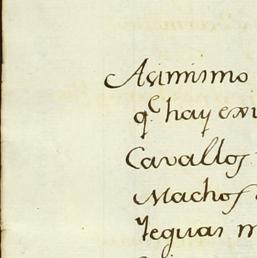 Asimismo
qᵉ hay exi
Cavallos
Machos
Yeguas m